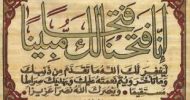 إنا فتحنا لك فتحا مبينا
ليغفر لك الله ما تقدم من ذنبك
وما تأخر ويتم نعمته عليك ويهديك صراطا
مستقيما وينصرك الله نصرا عزيزا